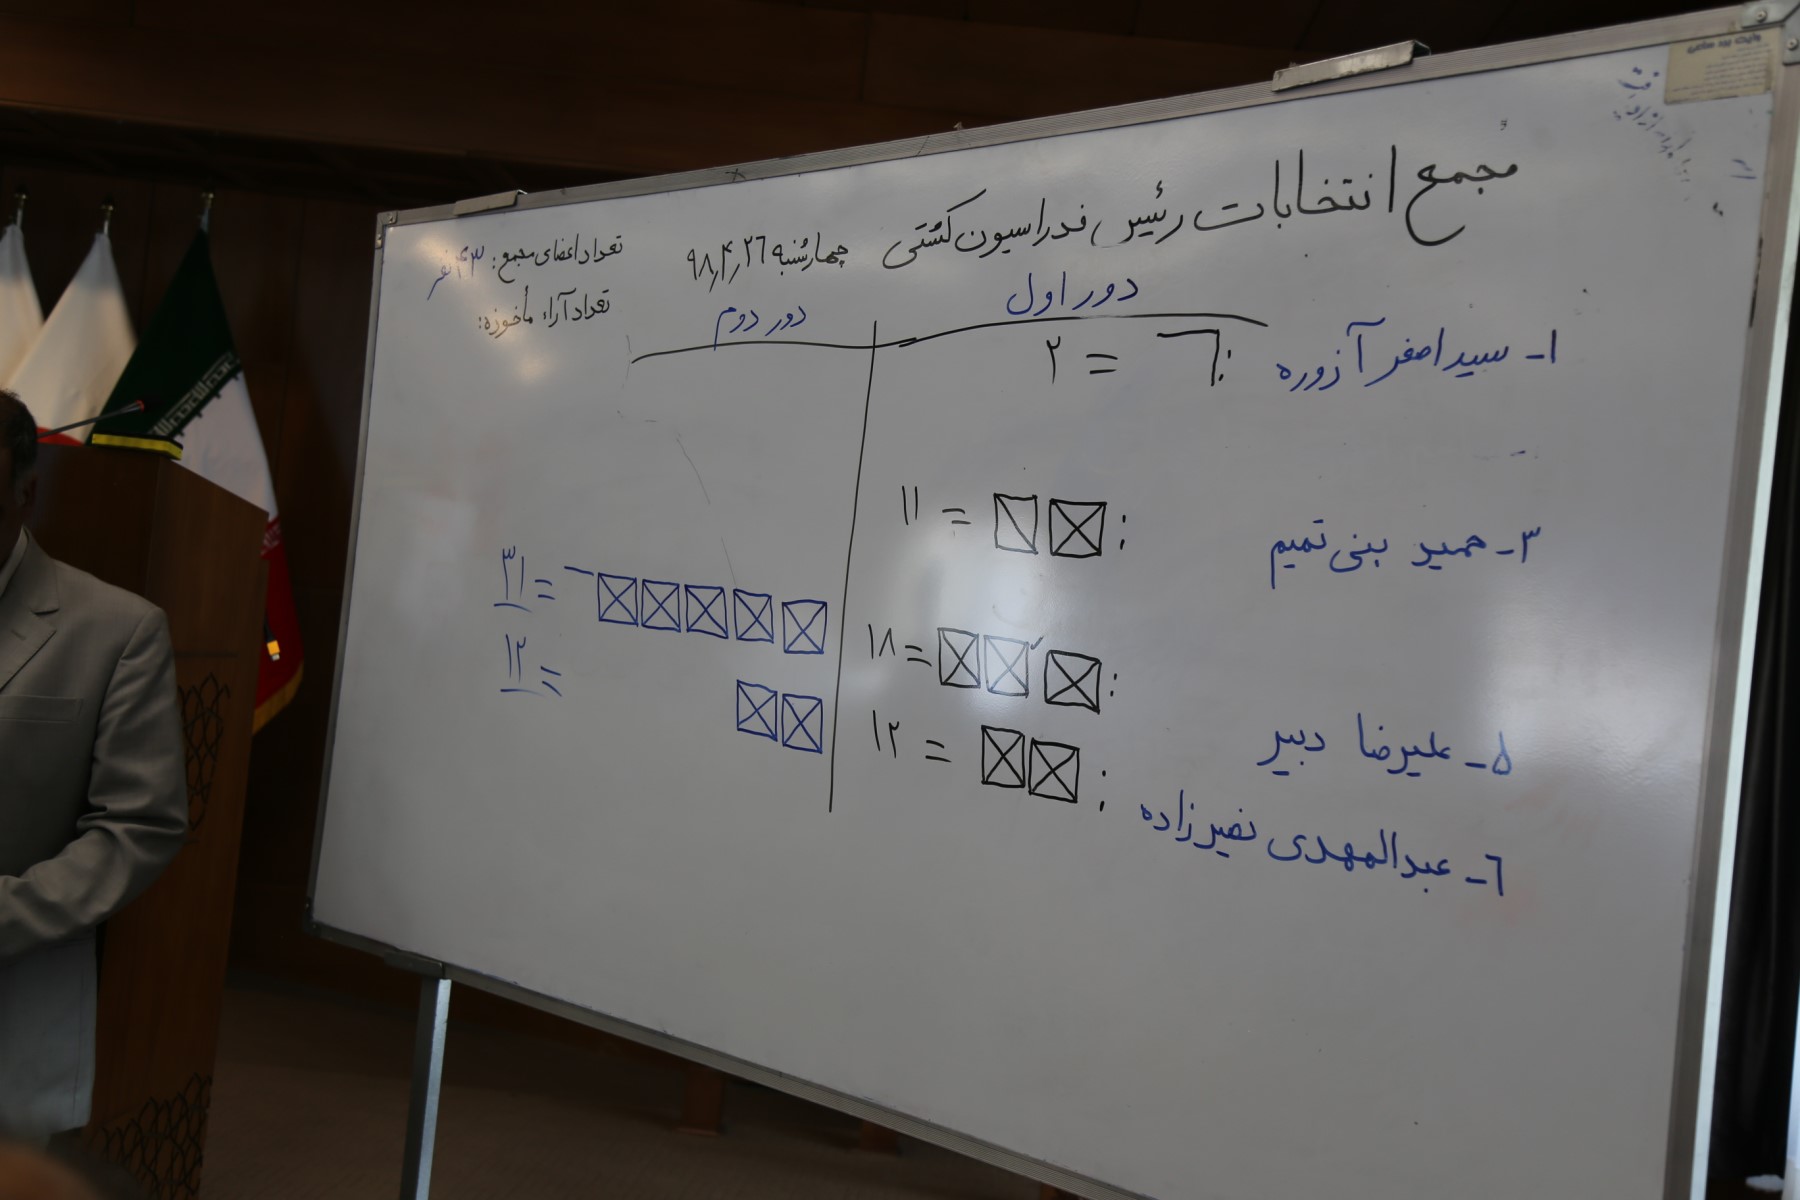 مجمع انتخابات رئیس فدراسیون کشتی چهارشنبه ۹۸,۴,۲۶
تعداد اعضای مجمع: ۴۳ نفر
تعداد آراء مأخوزه:
دور اول
دور دوم
۱- سید اصغر آذوره : = ۲
۳- حمید بنی تمیم : = ۱۱
۵- علیرضا دبیر : = ۱۸ = ۳۱
۶- عبدالمهدی نصیرزاده : = ۱۲ = ۱۲